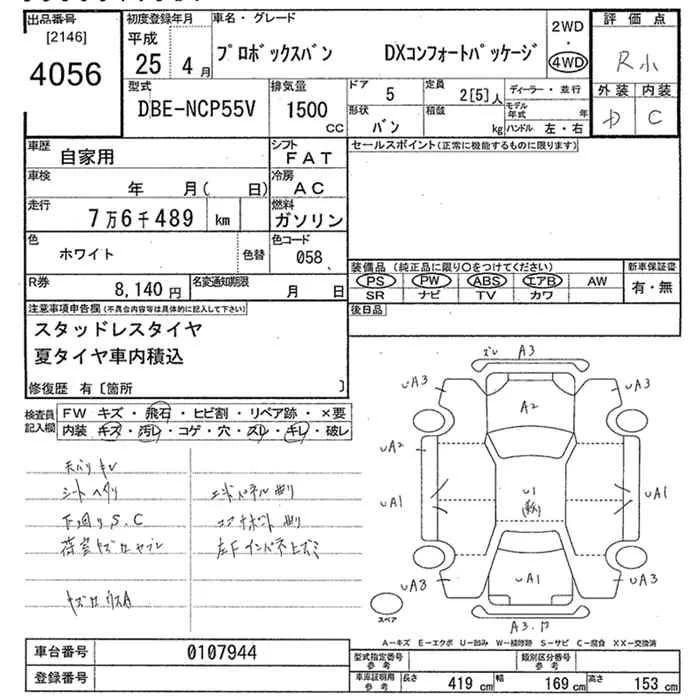 出品番号
[2146]
4056
初度登録年月
平成
25 4月
車名・グレード
プロボックスバン DXコンフォートパッケージ
2WD
・
4WD
評価点
R小
型式
DBE-NCP55V
排気量
1500
CC
ドア
5
定員
2[5]人
ディーラー・並行
形状
バン
積載
kg
モデル年式 年
ハンドル 左・右
外装 内装
D C
車歴
自家用
シフト
FAT
セールスポイント(正常に機能するものに限ります)
車検
年 月( 日)
冷房
AC
走行
7万6千489 km
燃料
ガソリン
色
ホワイト
色替
色コード
058
装備品(純正品に限り○をつけてください)
新車保証書
PS PW ABS エアB AW
有・無
SR ナビ TV カワ
R券
8,140円
名変通知期限
月 日
後日品
注意事項申告欄(不具合内容等は具体的に記入して下さい)
スタッドレスタイヤ
夏タイヤ車内積込
修復歴 有〔箇所 〕
検査員記入欄
FW キズ・飛石・ヒビ割・リペア跡・×要
内装 キズ・汚レ・コゲ・穴・スレ・キレ・破レ
天バリ キレ
シートヘタリ
下回りS.C
エンドパネル曲り
コアサポート曲り
ズレ A3
UA3
UA3
A2
UA2
UA1
U1
UA1
UA8
UA1
UA3
A3.P
スペア
A−キズ E−エクボ U−凹み W−補修跡 S−サビ C−腐食 XX−交換済
車台番号
0107944
登録番号
型式指定番号
参考
類別区分番号
参考
車庫証明用
参考
長さ 419cm 幅 169cm 高さ 153cm